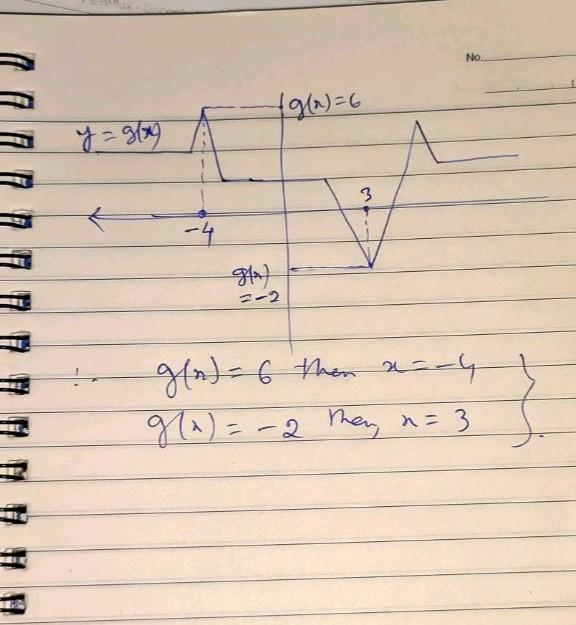 No.
g(x)=6
y = g(x)
3
-4
g(x)
=-2
∴ g(x) = 6 then x = -4
g(x) = -2 then, x = 3